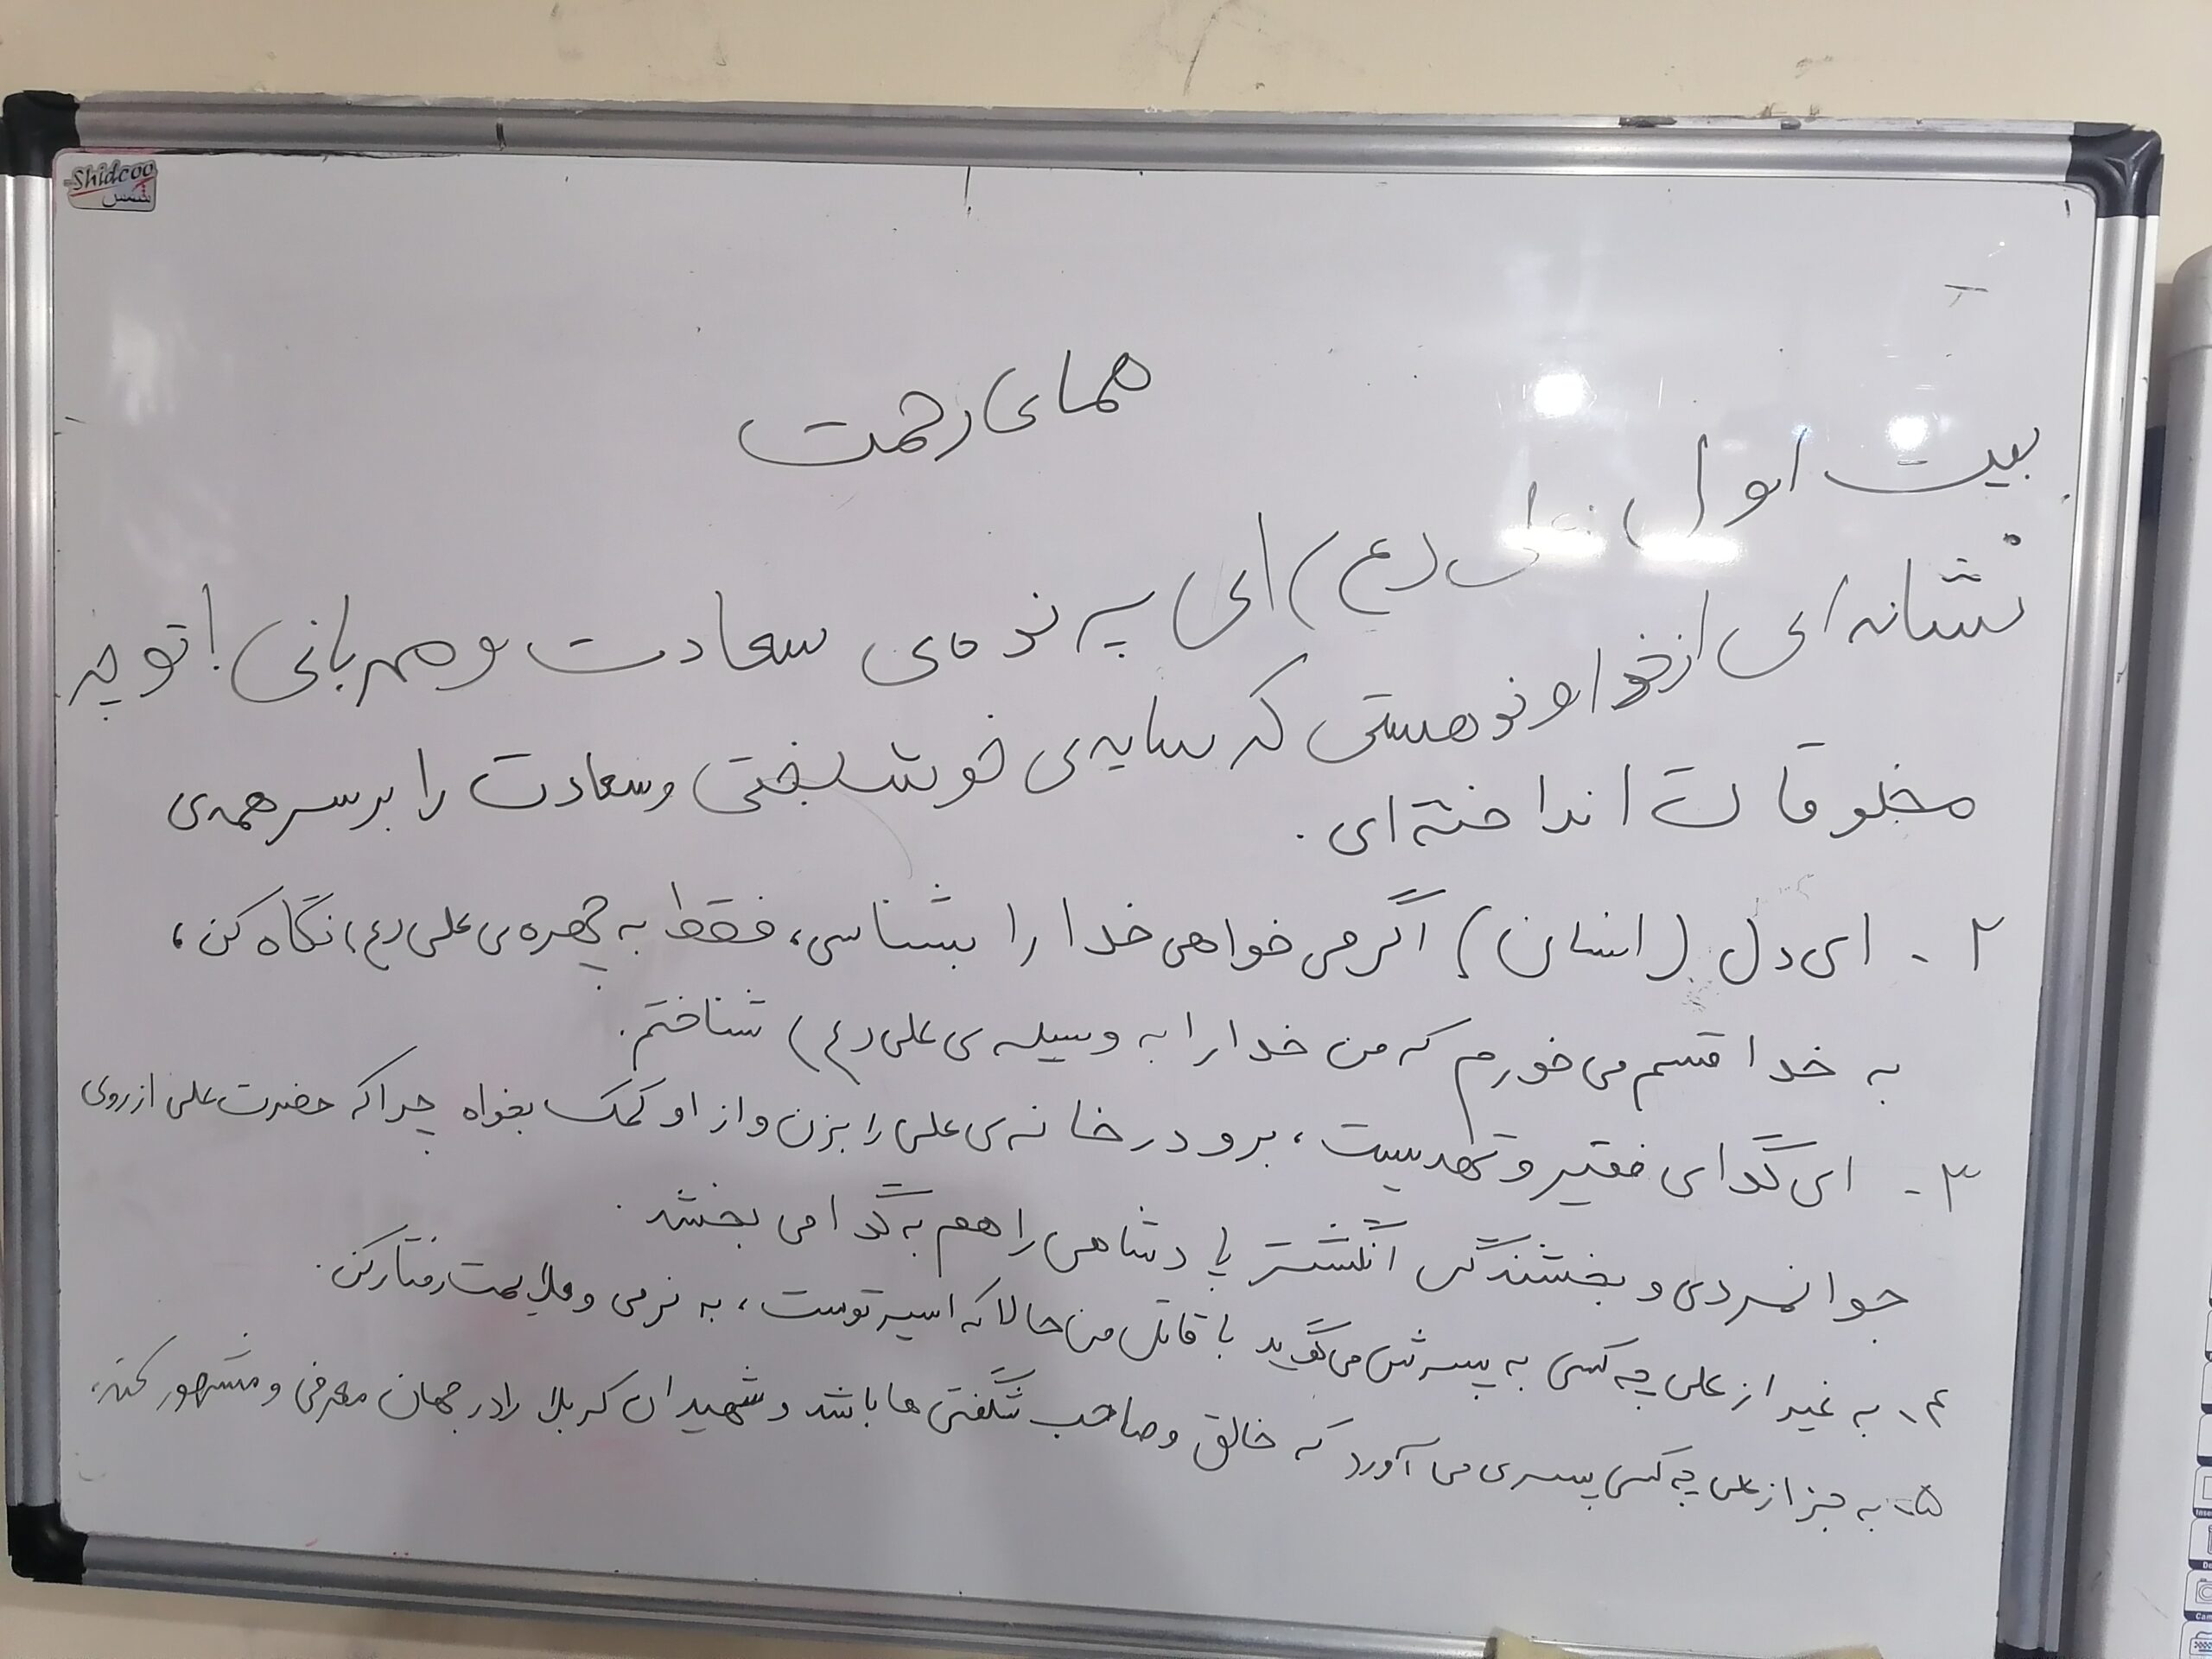 Shidcoo
شمس
همای رحمت
بیت اول: علی (ع) ای پرنده‌ی سعادت و مهربانی! تو چه
نشانه‌ای از خداوند هستی که سایه‌ی خوشبختی و سعادت را بر سر همه‌ی
مخلوقات انداخته‌ای.
۲ - ای دل (انسان) اگر می خواهی خدا را بشناسی، فقط به چهره‌ی علی (ع) نگاه کن،
به خدا قسم می خورم که من خدا را به وسیله‌ی علی (ع) شناختم.
۳ - ای گدای فقیر و تهدیست، برو در خانه‌ی علی را بزن و از او کمک بخواه چرا که حضرت علی از روی
جوانمردی و بخشندگی انگشتر پادشاهی را هم به گدا می بخشد.
۴- به غیر از علی چه کسی به پسرش می گوید با قاتل من حالا که اسیر توست، به نرمی و ملایمت رفتار کن.
۵- به جز از علی چه کسی پسری می آورد که خالق و صاحب شگفتی ها باشد و شهیدان کربلا را در جهان معرفی و مشهور کند،